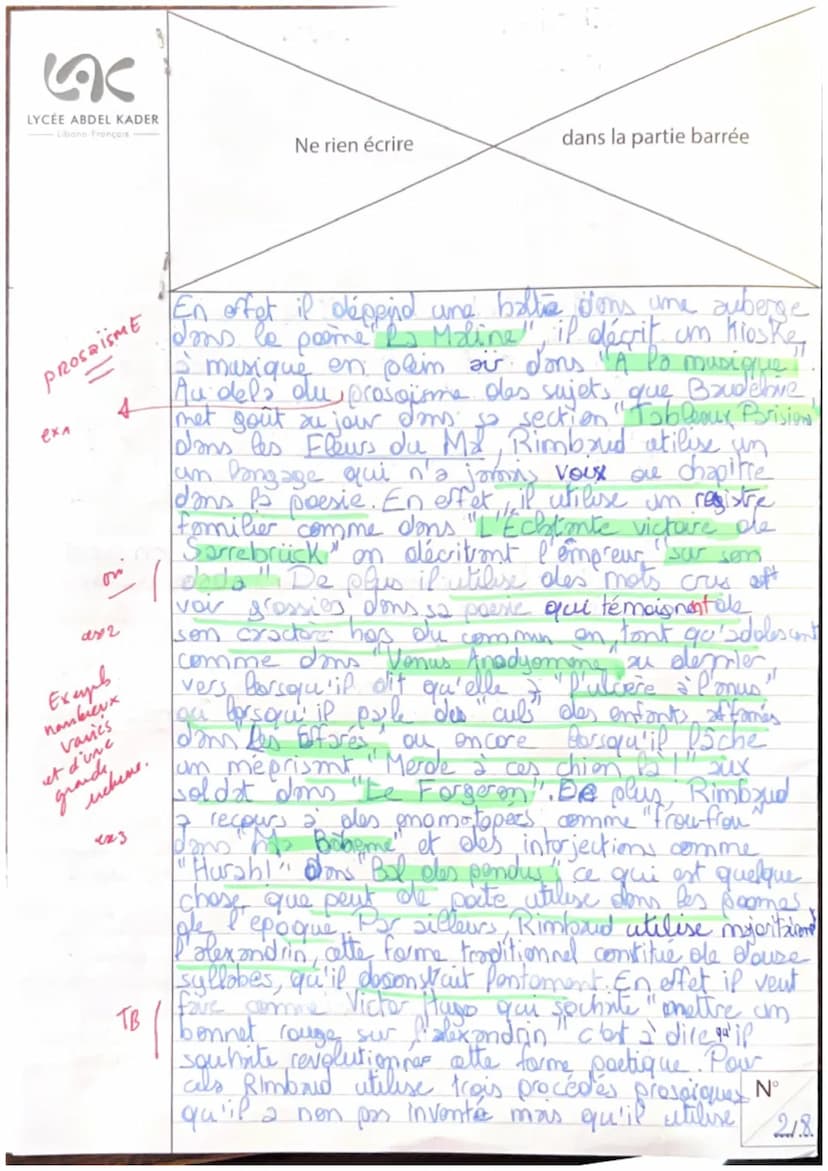 LAC
LYCÉE ABDEL KADER
Libano-Français
Ne rien écrire
dans la partie barrée
En effet il dépeind une halte dans une auberge
dans le poème "La Maline", il décrit un Kioske
à musique en plein air dans "A la musique".
PROSAÏSME
Au delà du prosaïsme des sujets que Baudelaire
ex1
met goût au jour dans sa section "Tableaux Parisiens"
dans les Fleurs du Mal, Rimbaud utilise un
un langage qui n'a jamais voix au chapitre
dans la poesie. En effet, il utilise un registre
familier comme dans "L'Eclatante victoire de
Sarrebrück" en décrivant l'empreur "sur son
oui
dada". De plus il utilise des mots crus
voir grossiers dans sa poesie qui témoignent de
ex2
son caractère hors du commun en tant qu'adolescent
comme dans "Venus Anadyomène" au dernier
vers lorsqu'il dit qu'elle a "l'ulcère à l'anus"
Exemples
nombreux
variés
et d'une
grande
richesse.
ou lorsqu'il parle des "culs" des enfants affamés
dans "Les Effarés" ou encore lorsqu'il lâche
un méprisant "Merde à ces chien là!" aux
soldat dans "Le Forgeron". De plus, Rimbaud
a recours à des onomotopées comme "frou-frou"
ex3
dans "Ma Bohème" et des interjections comme
"Hurrah!" dans "Bal des pendus" ce qui est quelque
chose que peut de poète utilise dans les poemes
de l'epoque. Par ailleurs, Rimbaud utilise majoritairement
l'alexandrin, cette forme traditionnel constitué de douze
syllabes, qu'il deconstruit lentement. En effet il veut
faire comme Victor Hugo qui souhaite "mettre un
TB
bonnet rouge sur l'alexandrin" c'est à dire qu'il
souhaite revolutionner cette forme poetique. Pour
cela Rimbaud utilise trois procédés prosaïques
qu'il a non pas inventé mais qu'il utilise
N°
2/8